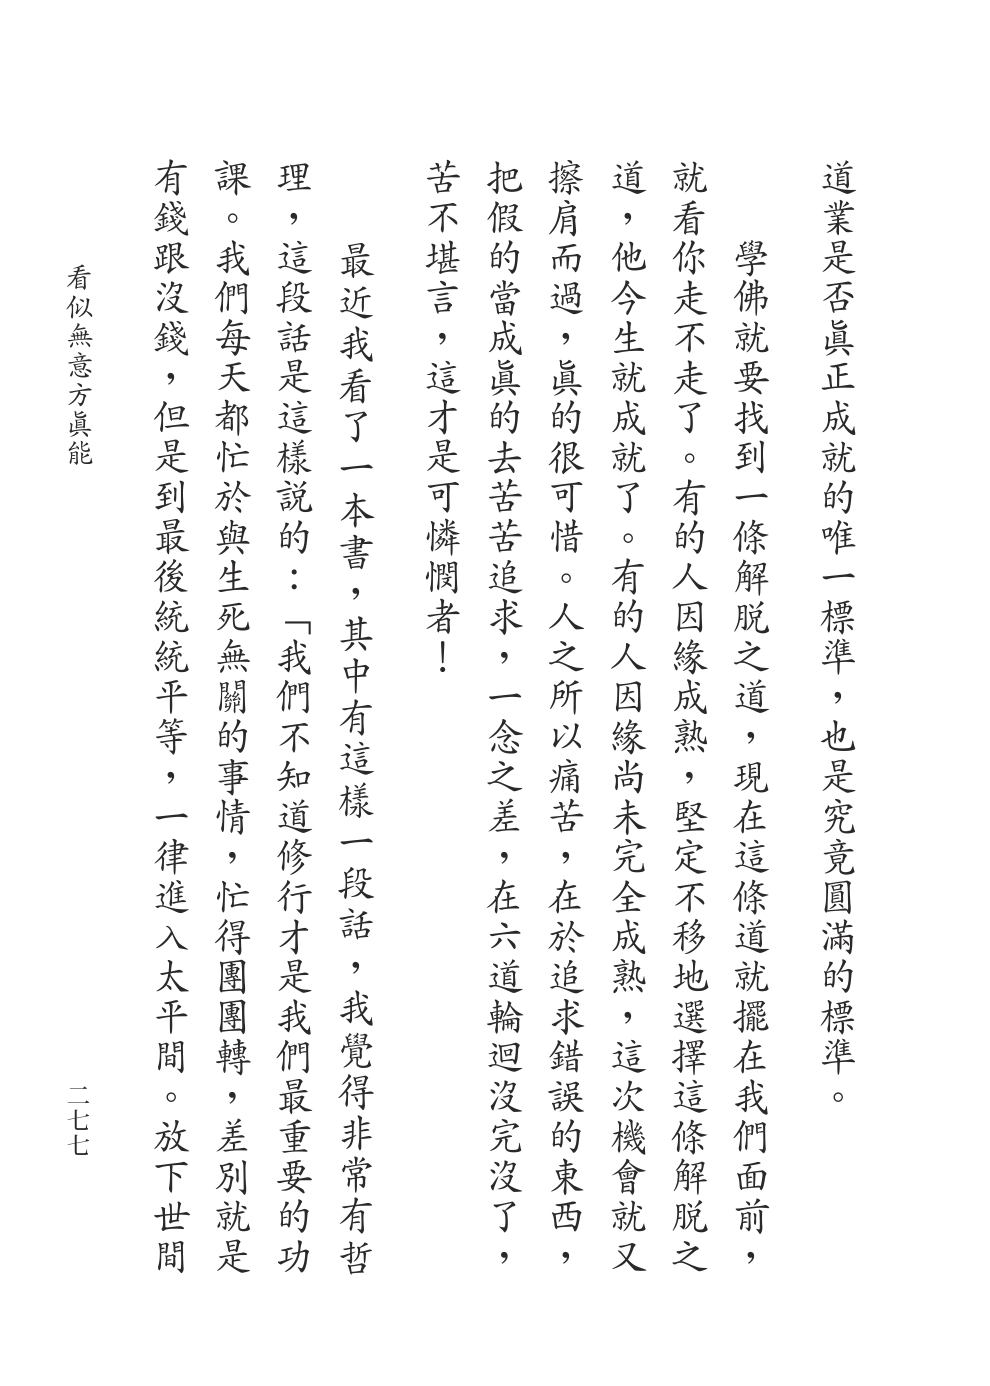 道業是否眞正成就的唯一標準，也是究竟圓滿的標準。
學佛就要找到一條解脫之道，現在這條道就擺在我們面前，
就看你走不走了。有的人因緣成熟，堅定不移地選擇這條解脫之
道，他今生就成就了。有的人因緣尚未完全成熟，這次機會就又
擦肩而過，眞的很可惜。人之所以痛苦，在於追求錯誤的東西，
把假的當成眞的去苦苦追求，一念之差，在六道輪迴沒完沒了，
苦不堪言，這才是可憐憫者！
最近我看了一本書，其中有這樣一段話，我覺得非常有哲
理，這段話是這樣説的：「我們不知道修行才是我們最重要的功
課。我們每天都忙於與生死無關的事情，忙得團團轉，差別就是
有錢跟沒錢，但是到最後統統平等，一律進入太平間。放下世間
看似無意方眞能
二七七